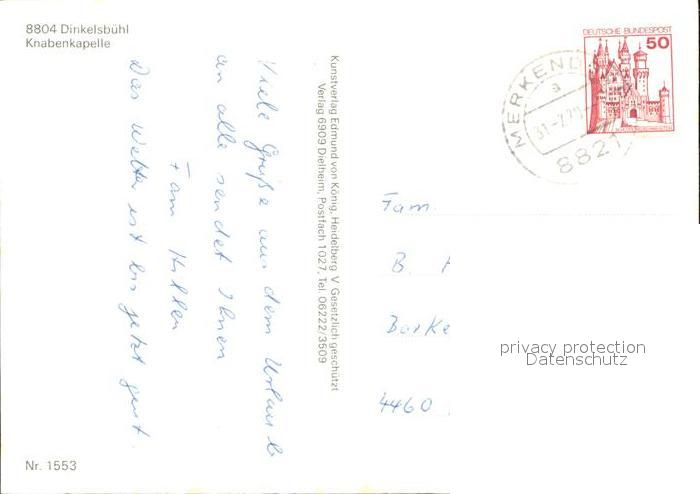 8804 Dinkelsbühl
Knabenkapelle
Viele Grüße aus dem Urlaub
an alle sendet Ihnen
Fam Hillen
Das Wetter ist bis jetzt gut.
Kunstverlag Edmund von König, Heidelberg V Gesetzlich geschützt
Verlag 6909 Dielheim, Postfach 1027, Tel. 06222/3509
DEUTSCHE BUNDESPOST
50
MERKEND
a
8821
Fam.
B.
4460
privacy protection
Datenschutz
Nr. 1553